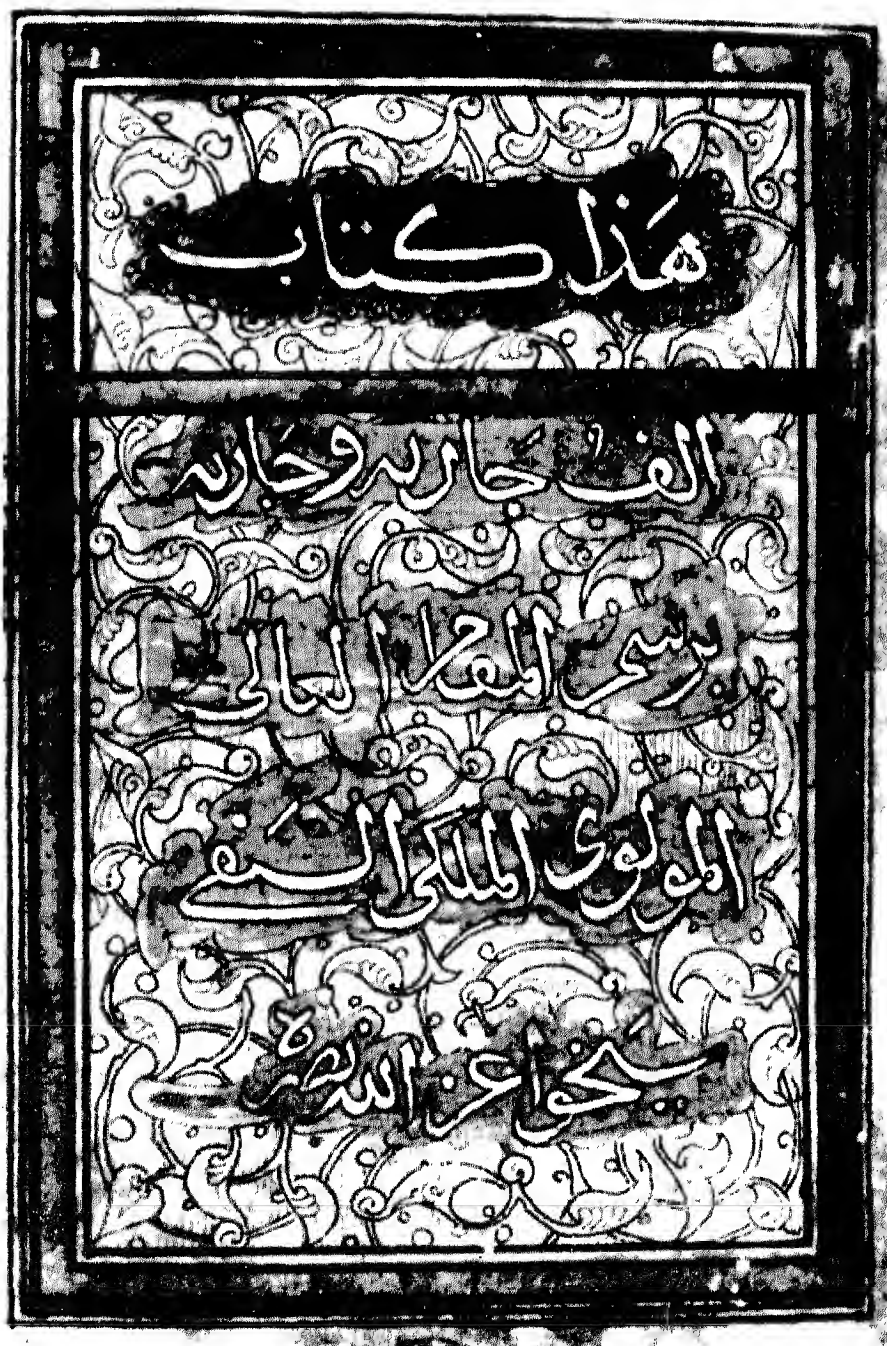 هَذا كتاب
الف جاريه وجاريه
برسم المقر العالي
المولوي الملكي السيفي
شيخوا عز الله نصره